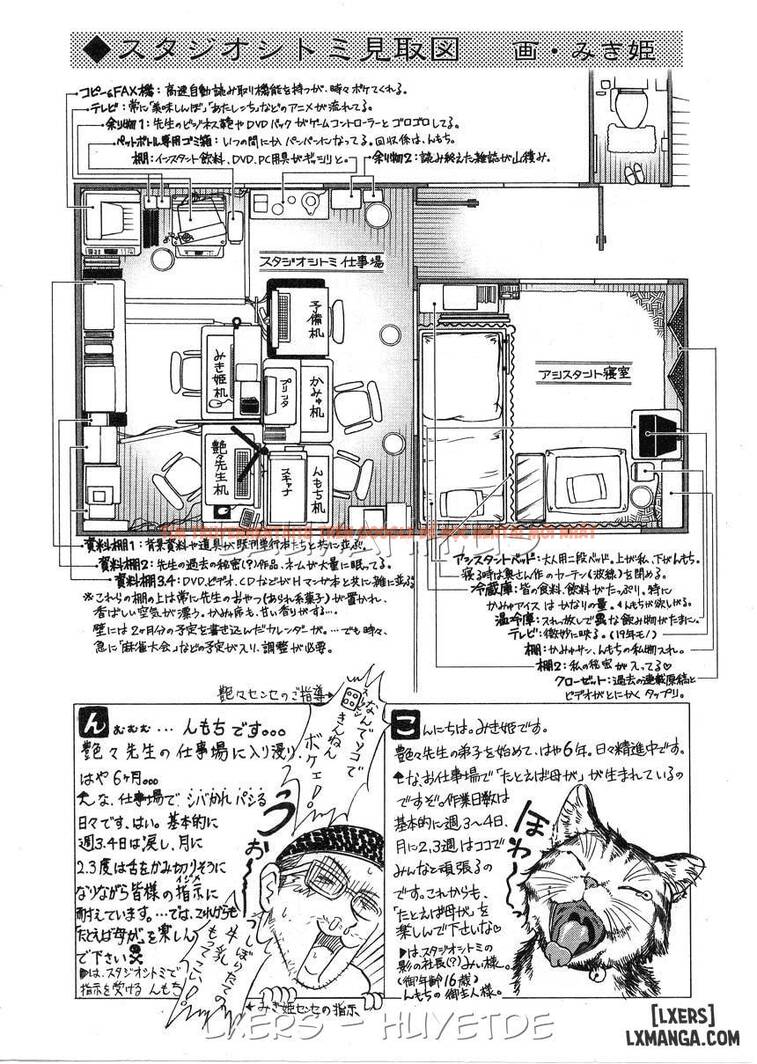 ◆スタジオシトミ見取図　画・みき姫
コピー&FAX機：高速自動読み取り機能を持つが、時々ボケてくれる。
テレビ：常に「美味しんぼ」「あたしンち」などのアニメが流れてる。
余り物1：先生のビジネス鞄やDVDパックがゲームコントローラーとゴロゴロしてる。
ペットボトル専用ゴミ箱：いつの間にかパンパンになってる。回収係は、んもち。
棚：インスタント飲料、DVD、PC用具がギッシリと。
余り物2：読み終えた雑誌が山積み。
スタジオシトミ仕事場
予備机
みき姫机
プリンタ
かみゅ机
アシスタント寝室
艶々先生机
スキャナ
んもち机
資料棚1：背景資料や道具が既刊単行本たちと共に並ぶ。
資料棚2：先生の過去の秘密(?)作品、ネームが大量に眠ってる。
資料棚3.4：DVD、ビデオ、CDなどがHマンガ本と共に雑に並ぶ
※これらの棚の上は常に先生のおやつ(あられ系菓子)が置かれ、
香ばしい空気が漂う。かみゅ席も、甘い香りがする…。
壁には2ヶ月分の予定を書き込んだカレンダーが。…でも時々、
急に「麻雀大会」などの予定が入り、調整が必要。
アシスタントベッド：大人用二段ベッド。上が私、下がんもち。
寝る時は奥さん作のカーテン(波線)を閉める。
冷蔵庫：皆の食料、飲料がたっぷり。特に
かみゅアイスはかなりの量。んもちが欲しがる。
温冷庫：スれ放しで異な飲み物がたまに。
テレビ：微妙に映る。(19年モノ)
棚：かみゅサン、んもちの私物入れ。
棚2：私の秘密が入ってる♡
クローゼット：過去の連載原稿と
ビデオがとにかくタップリ。
艶々センセのご指導→
んむむむ…んもちです。。。
艶々先生の仕事場に入り浸り
はや6ヶ月。。。
そんな、仕事場でシバかれパシる
日々です、はい。基本的に
週3.4日は涙し、月に
2.3度は舌をかみ切りそうに
なりながら皆様の指示に
耐えています。…では、これからも
「たとえば母が」を楽しん
で下さい☠
▶は、スタジオシトミで
指示を受けるんもち
なんでソコで
きんねん
ボケェ!!
うお〜
しぼりたての
牛乳
もってこい!
←みき姫センセの指示
こんにちは。みき姫です。
艶々先生の弟子を始めて、はや6年。日々精進中です。
そんなお仕事場で「たとえば母が」が生まれているの
ですぞ。作業日数は
基本的に週3〜4日、
月に2,3週はココで
みんなと頑張るの
です。これからも、
「たとえば母が」を
楽しんで下さいな♡
▶は、スタジオシトミの
影の社長(?)みぃ様〜。
(御年齢16歳)
んもちの御主人様。
ほわ〜
LXERS - HUYETDE
[LXERS]
LXMANGA.COM